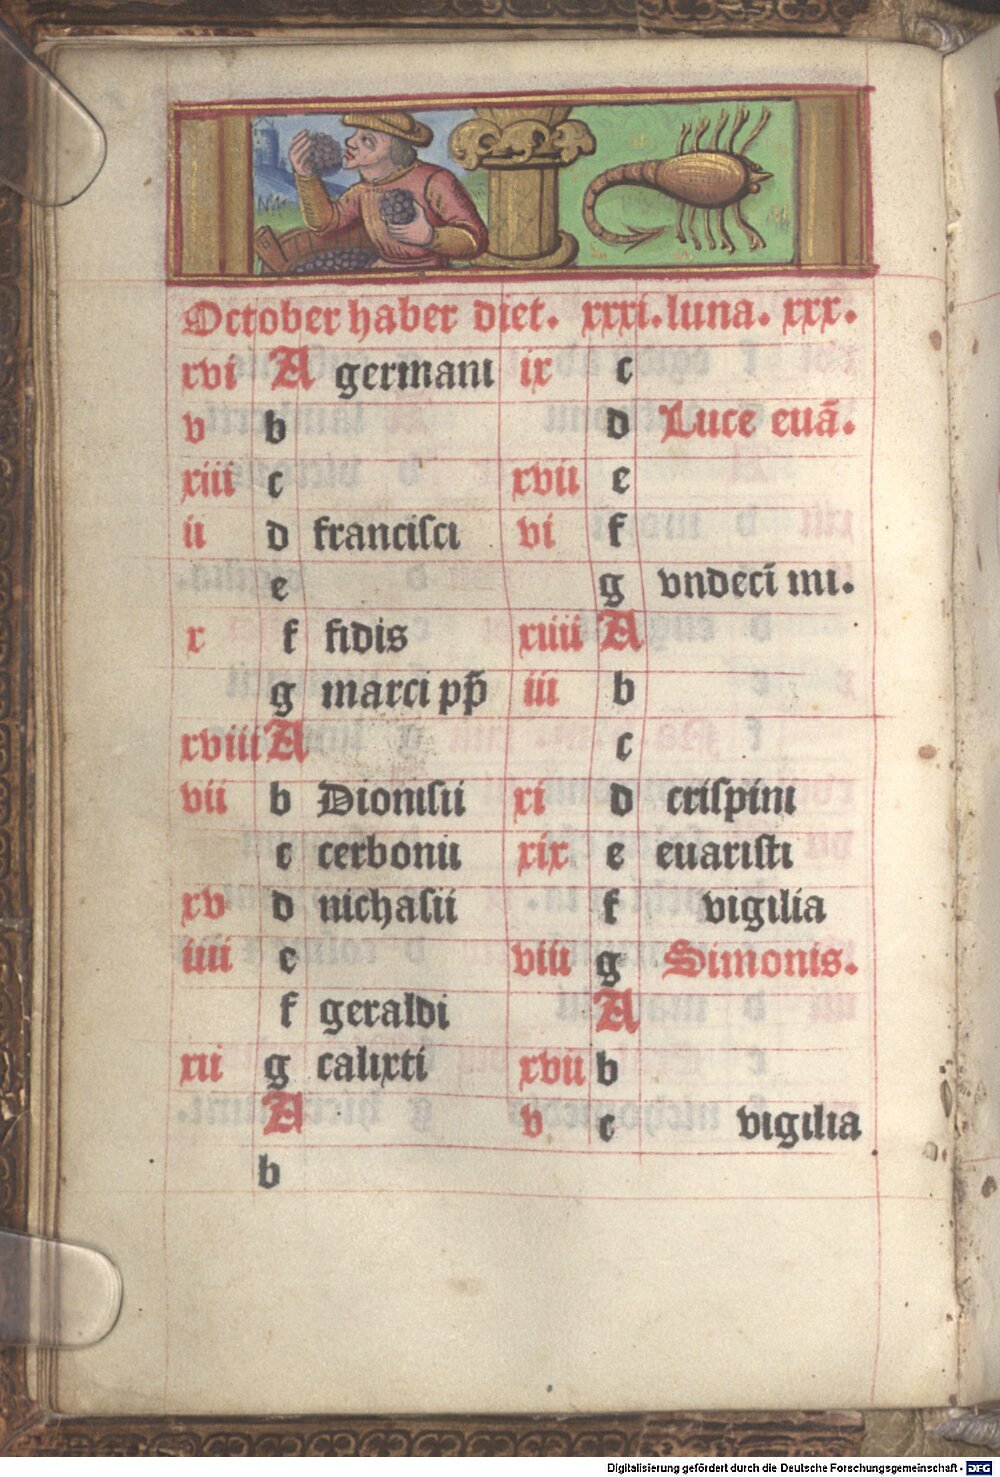 October haber diet. xxxi. luna. xxx.
xvi A germani
v b
xiii c
ii d francisci
e
x f fidis
g marci pp̄
xviii A
vii b Dionisii
c cerbonii
xv d nichasii
iiii e
f geraldi
xii g calixti
A
b
ix c
d Luce euā.
xvii e
vi f
g vndecī mi.
xiiii A
iii b
c
xi d crispini
xix e euaristi
f vigilia
viii g Simonis.
A
xvii b
v c vigilia
Digitalisierung gefördert durch die Deutsche Forschungsgemeinschaft - DFG